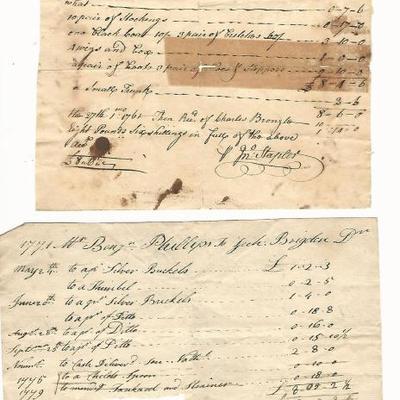 what 0-7-6
10 pair of Stockings 0-17-0
one Black Coat 10/ 3 pair of 3-10-0
2 wigs and Box 1-0-0
a pair of Boots 3 pair of and Slippers 0-10-0
8-4-6
a Small Trunk 3-6
the 27th 1mo 1761 Then Recd of Charles 8-6-0
Eight Pounds Six shillings in full of the above
Jno Staples
1771 Mr Benjn Phillips to Zech. Brigden Dr
May 24th to a pr Silver Buckels £ 1-2-3
to a thimbel 0-2-5
June 20th to a pr Silver Buckels 1-4-0
to a pr of Ditto 0-18-8
Augt 28th to a pr of Ditto 0-16-0
Septr 28th to a pr of Ditto 0-15-10½
to Cash Delivrd Son 2-8-0
1775 to a Childs Spoon 0-10-0
1779 to mending Tankard and Strainer 0-18-0